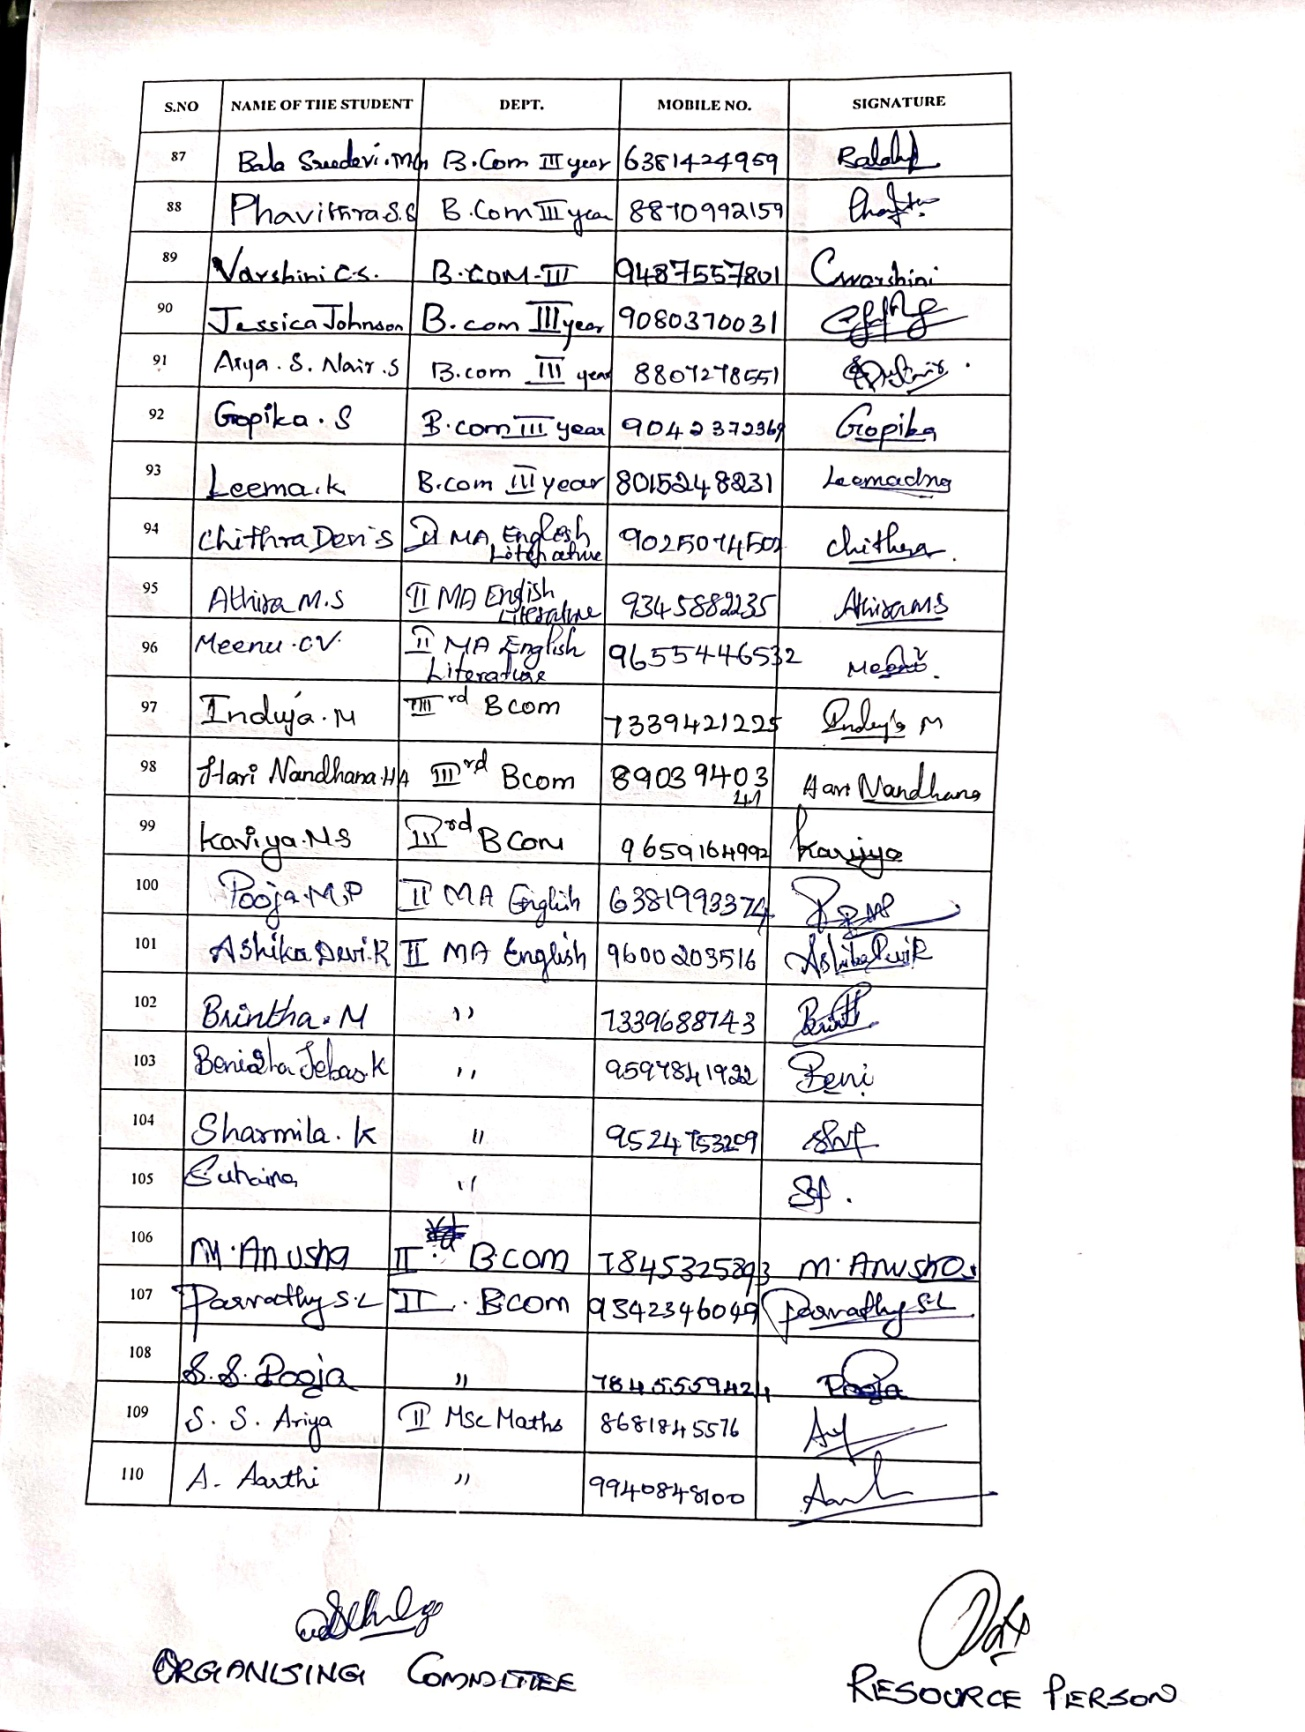 S.NO NAME OF THE STUDENT DEPT. MOBILE NO. SIGNATURE
87 Bala Sreedevi. B.Com III year 6381424959
88 Phavithra S.S B.Com III year 8870992159
89 Varshini C.S. B.COM-III 9487557801 Cwarshini
90 Jessica Johnson B.com III year 9080370031
91 Arya. S. Nair. S B.com III year 8807278551
92 Gopika. S B.com III year 9042372369 Gopika
93 Leema.k B.com III year 8015248231
94 Chithra Devi S II MA English Literature 9025074502 Chithra.
95 Athira M.S II MA English Literature 9345882235 Athira M S
96 Meenu.CV. II MA English Literature 9655446532 Meenu.
97 Induja.M III rd B com 7339421225 Induja M
98 Hari Nandhana.HA III rd Bcom 8903940341 Hari Nandhana
99 Kaviya.M.S III rd B Com 9659164992 Kaviya
100 Pooja.M.P II MA English 6381993374
101 Ashika Devi.R II MA English 9600203516 Ashika Devi R
102 Brintha. M " 7339688743
103 Benisha Jebas.K " 9597841922 Beni
104 Sharmila. K " 9524753209
105 Suhaina " 
106 M.Anusha II B.com 7845325893 M.Anusha.
107 Parvathy S.L II. B.com 9342346049 Parvathy S.L
108 S.S.Pooja " 7845559424 Pooja
109 S. S. Ariya II Msc Maths 8681845576
110 A. Aarthi " 9940848100
ORGANISING COMMITTEE RESOURCE PERSON